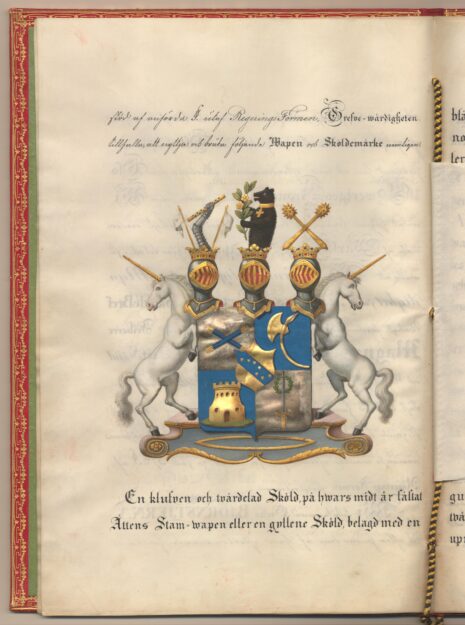 stöd af anförda § utaf Regerings Formen, Grefve-wärdigheten
tillfalla, att nyttja och bruka följande Wapen och Sköldemärke nemligen:
En klufven och twärdelad Sköld, på hwars midt är fästat
Ättens Stam-wapen eller en gyllene Sköld, belagd med en
blå
no
ler
gu
twä
up